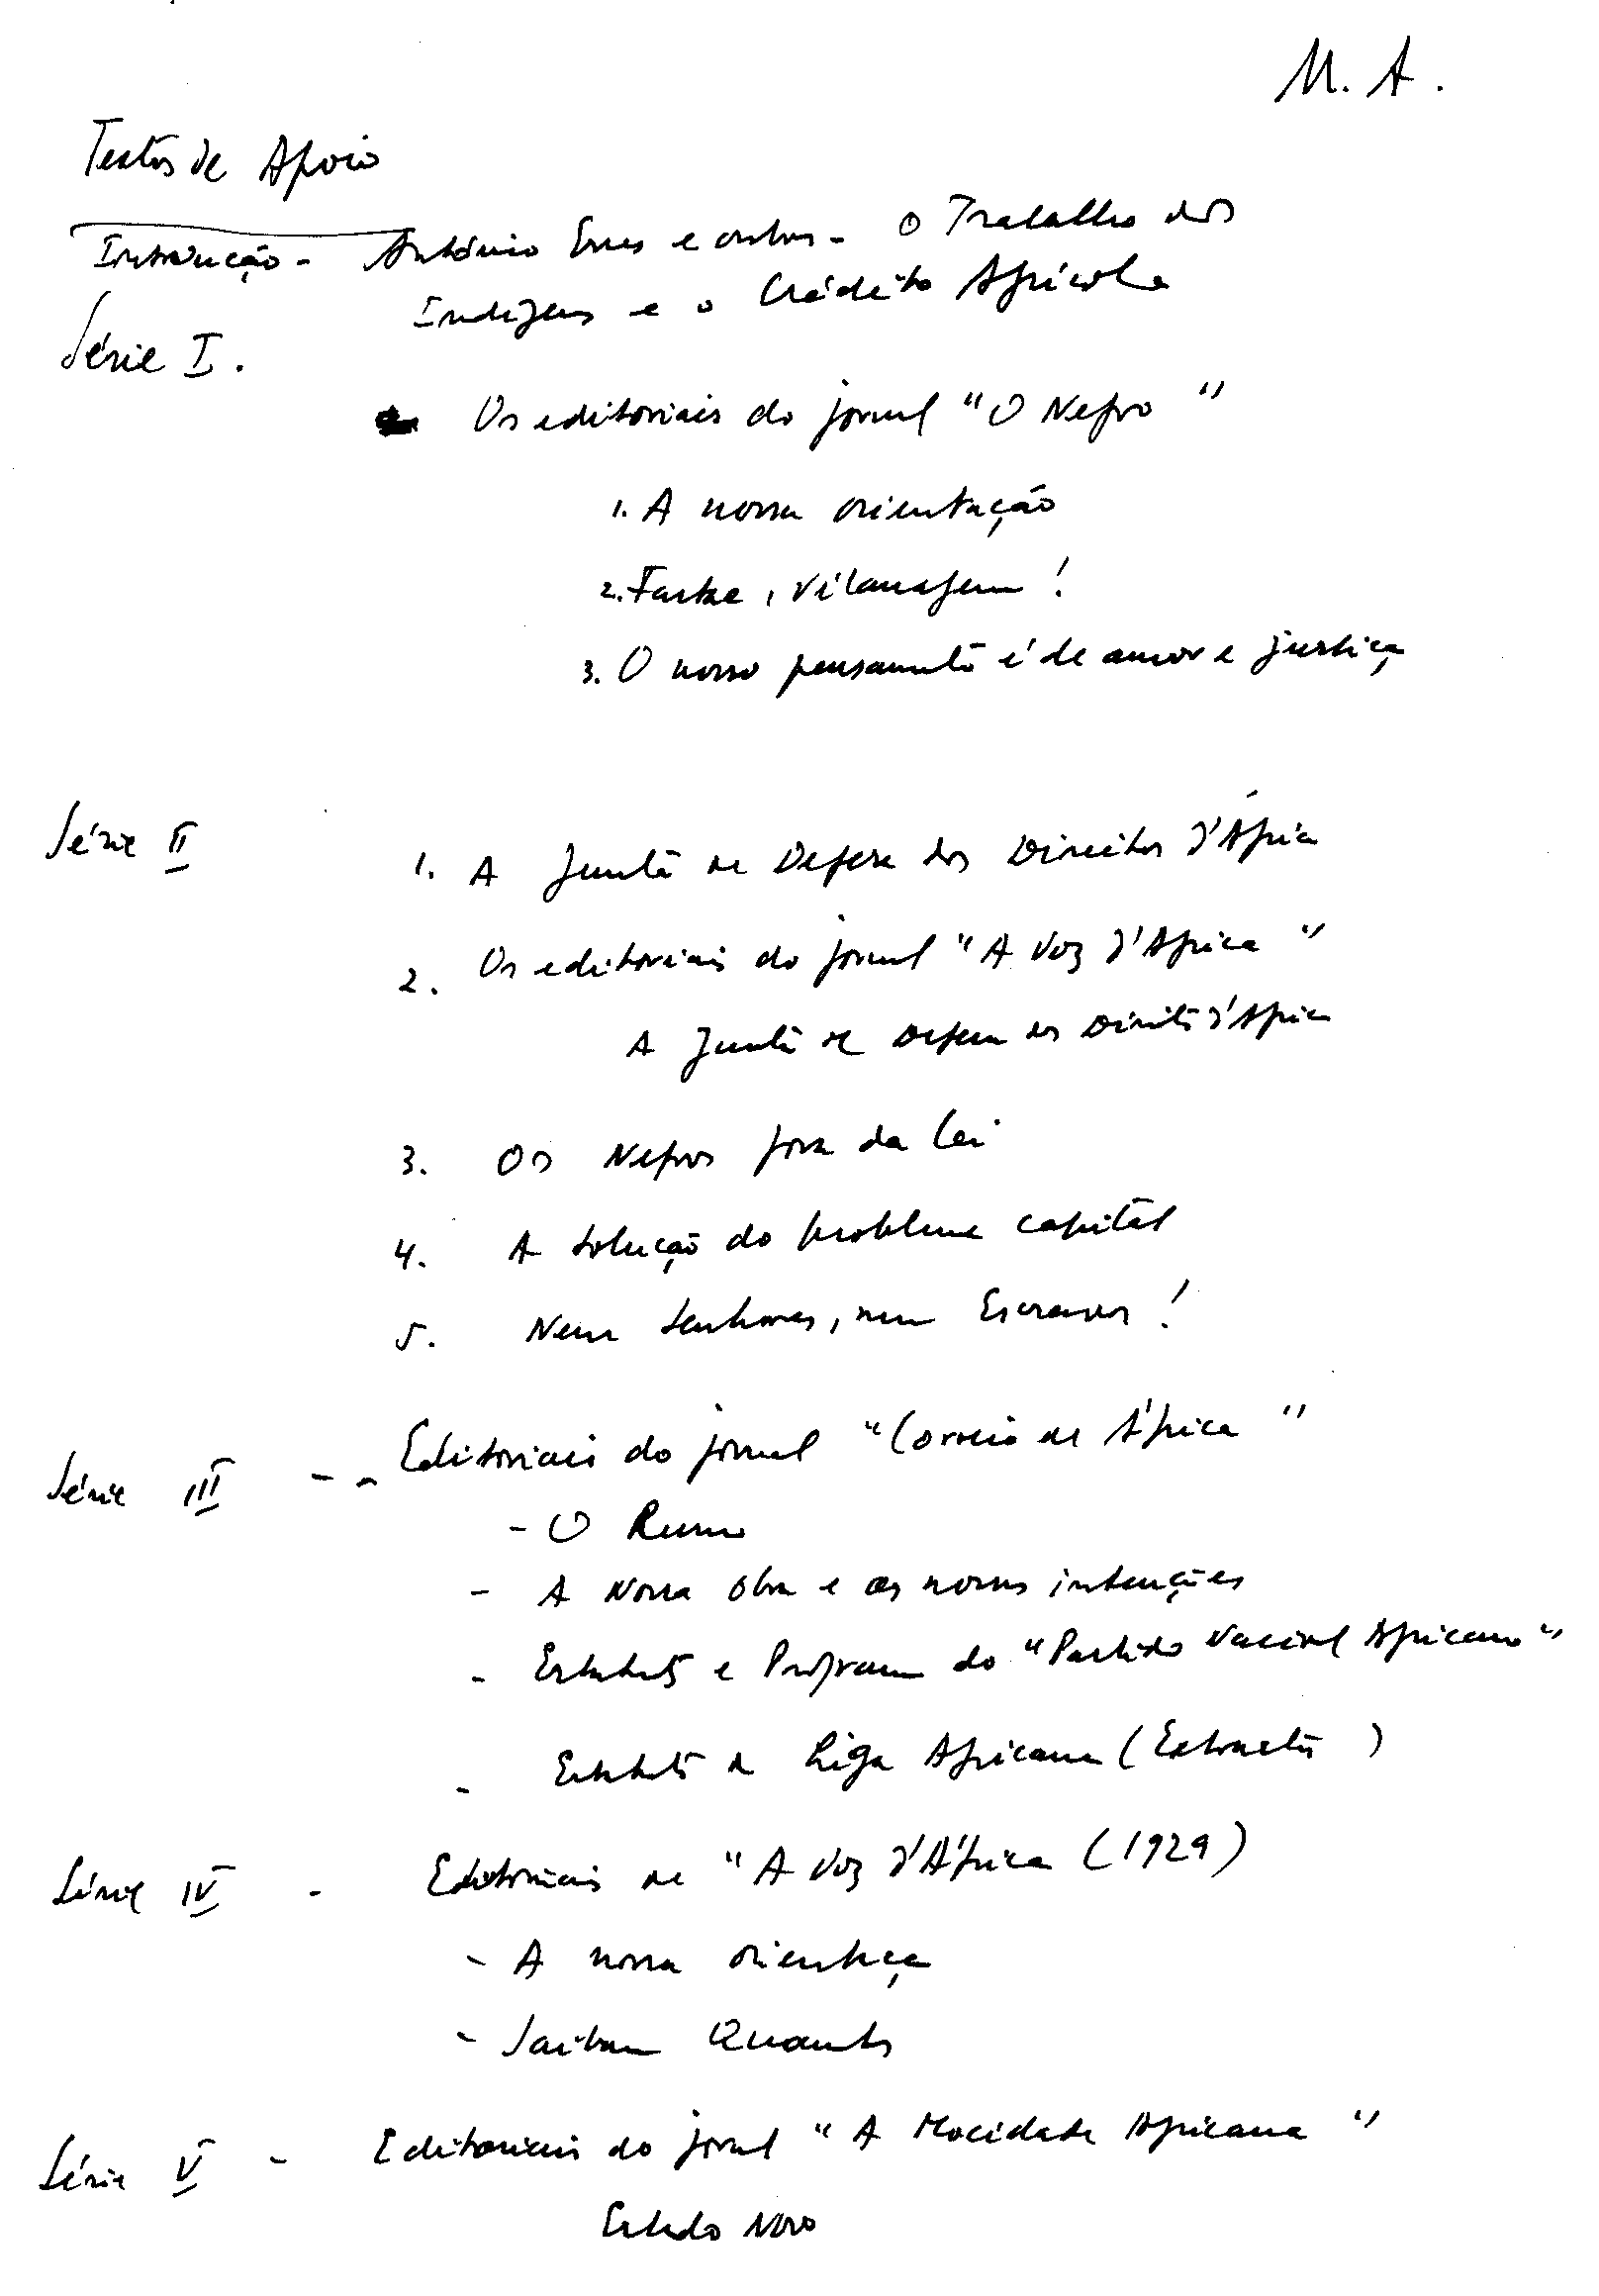 M. A.
Textos de Apoio
Introdução - António Enes e outros - O Trabalho dos
Indígenas e o Crédito Agrícola
Série I.
Os editoriais do jornal "O Negro"
1. A nossa orientação
2. Fartae, vilanagem!
3. O nosso pensamento é de amor e justiça
Série II
1. A Junta de Defesa dos Direitos d'África
2. Os editoriais do jornal "A Voz d'Africa"
A Junta de Defesa dos Direitos d'Africa
3. Os Negros fora da Lei
4. A solução do problema capital
5. Nem Senhores, nem Escravos!
Série III -- Editoriais do jornal "Correio de África"
- O Rumo
- A Nossa Obra e as nossas intenções
- Estatutos e Programa do "Partido Nacional Africano"
- Estatutos da Liga Africana (Extractos)
Série IV - Editoriais de "A Voz d'África (1929)
- A nossa orientação
- Saibam Quantos
Série V - Editoriais do jornal "A Mocidade Africana"
Estado Novo